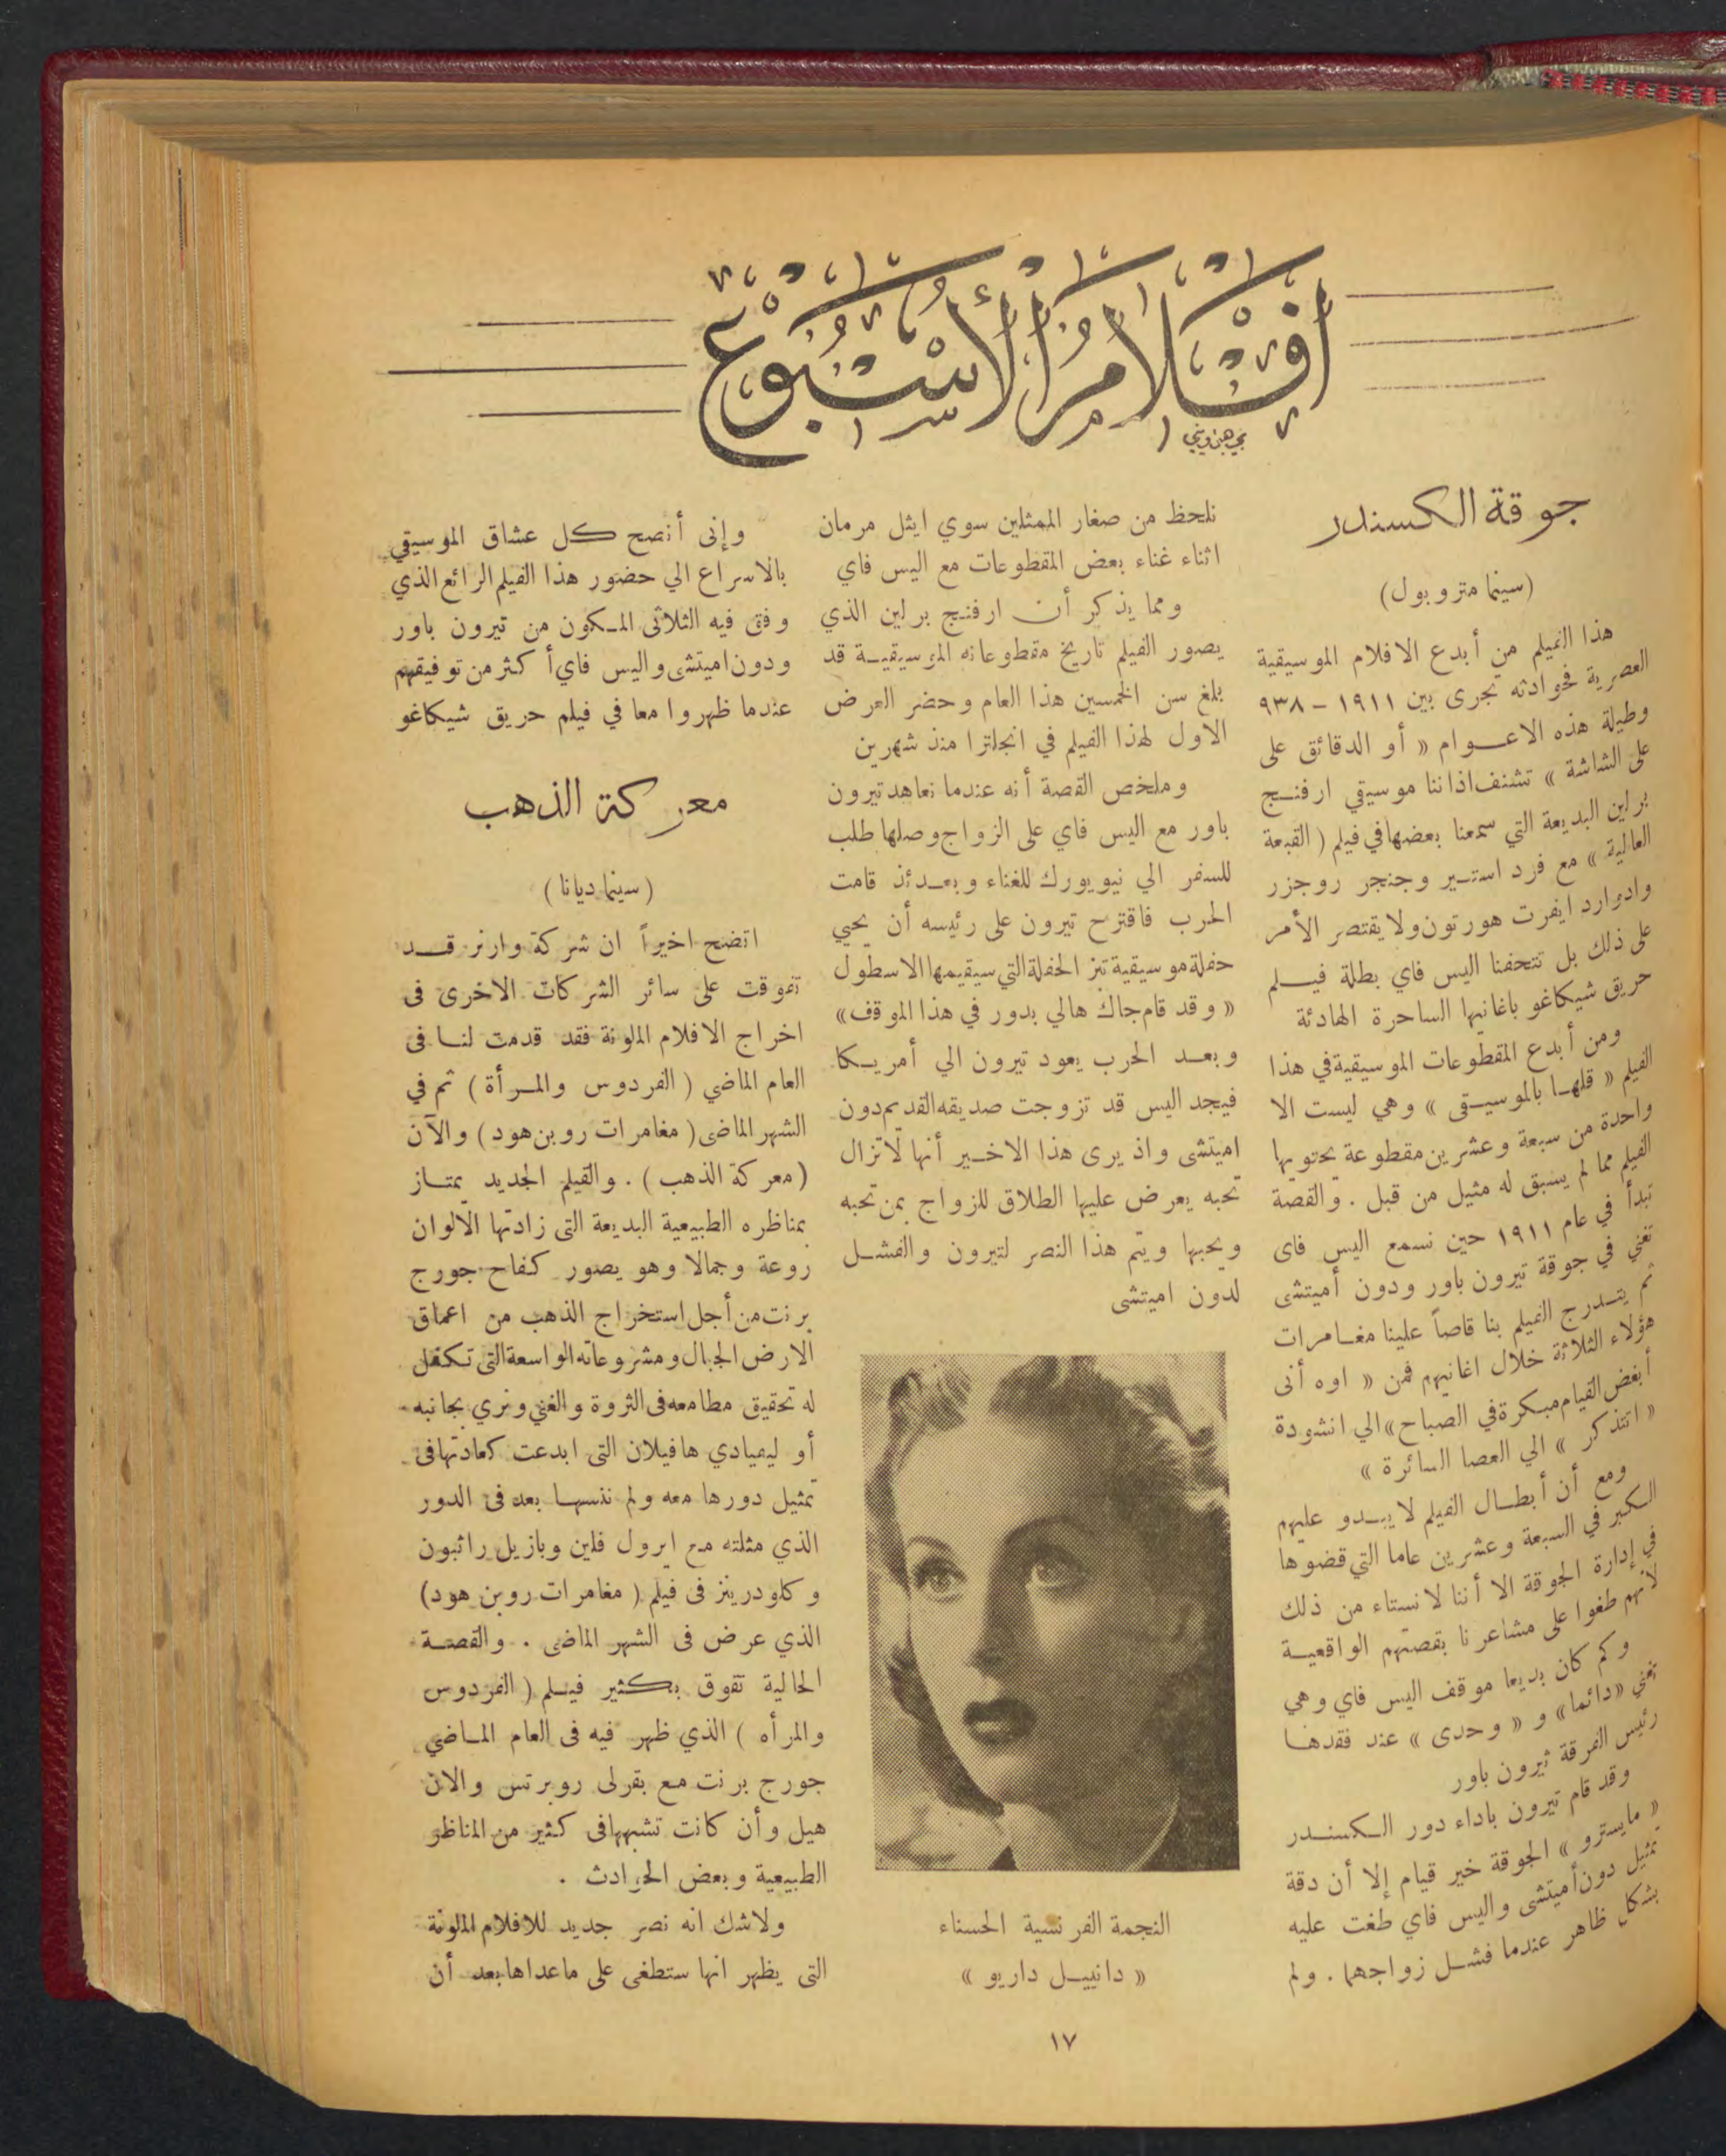 أفلام الأسبوع
جوقة الكسندر
(سينما متروبول)
هذا الفيلم من أبدع الافلام الموسيقية
العصرية فحوادثه تجرى بين ١٩١١ – ٩٣٨
وطيلة هذه الاعوام « أو الدقائق على
على الشاشة » تشنف اذاننا موسيقي ارفنج
برلين البديعة التي سمعنا بعضها في فيلم ( القبعة
العالية » مع فرد استير وجنجر روجزر
وادوارد ايفرت هورتون ولا يقتصر الأمر
على ذلك بل تتحفنا اليس فاي بطلة فيلم
حريق شيكاغو باغانيها الساحرة الهادئة
ومن أبدع المقطوعات الموسيقية في هذا
الفيلم « قلها بالموسيقى » وهي ليست الا
واحدة من سبعة وعشرين مقطوعة يحتويها
الفيلم مما لم يسبق له مثيل من قبل . والقصة
تبدأ في عام ١٩١١ حين نسمع اليس فاى
تغني في جوقة تيرون باور ودون أميتشى
ثم يتدرج الفيلم بنا قاصاً علينا مغامرات
هؤلاء الثلاثة خلال اغانيهم فمن « اوه أنى
أبغض القيام مبكرة في الصباح» الي انشودة
« اتتذكر » الي العصا السائرة »
ومع أن أبطال الفيلم لا يبدو عليهم
الكبر في السبعة وعشرين عاما التي قضوها
في إدارة الجوقة الا أننا لا نستاء من ذلك
لأنهم طغوا على مشاعرنا بقصتهم الواقعية
وكم كان بديعا موقف اليس فاي وهي
تغني «دائما» و « وحدى » عند فقدها
رئيس الفرقة تيرون باور
وقد قام تيرون باداء دور الكسندر
« مايسترو » الجوقة خير قيام إلا أن دقة
تمثيل دون أميتشى واليس فاي طغت عليه
بشكل ظاهر عندما فشل زواجهما . ولم
نلحظ من صغار الممثلين سوي ايثل مرمان
اثناء غناء بعض المقطوعات مع اليس فاي
ومما يذكر أن ارفنج برلين الذي
يصور الفيلم تاريخ مقطوعاته الموسيقية قد
بلغ سن الخمسين هذا العام وحضر العرض
الاول لهذا الفيلم في انجلترا منذ شهرين
وملخص القصة أنه عندما تعاهد تيرون
باور مع اليس فاي على الزواج وصلها طلب
للسفر الي نيويورك للغناء وبعدئذ قامت
الحرب فاقترح تيرون على رئيسه أن يحيي
حفلة موسيقية تبز الحفلة التي سيقيمها الاسطول
« وقد قام جاك هالي بدور في هذا الموقف»
وبعد الحرب يعود تيرون الي أمريكا
فيجد اليس قد تزوجت صديقه القديم دون
اميتشى واذ يرى هذا الاخير أنها لاتزال
تحبه يعرض عليها الطلاق للزواج بمن تحبه
ويحبها ويتم هذا النصر لتيرون والفشل
لدون اميتشى
النجمة الفرنسية الحسناء
« دانييل داريو »
وإنى أنصح كل عشاق الموسيقي
بالاسراع الي حضور هذا الفيلم الرائع الذي
وفق فيه الثلاثى المكون من تيرون باور
ودون اميتشى واليس فاي أكثر من توفيقهم
عندما ظهروا معا في فيلم حريق شيكاغو
معركة الذهب
(سينما ديانا)
اتضح اخيراً ان شركة وارنر قد
تفوقت على سائر الشركات الاخرى فى
اخراج الافلام الملونة فقد قدمت لنا فى
العام الماضي ( الفردوس والمرأة ) ثم في
الشهر الماضى ( مغامرات روبن هود ) والآن
(معركة الذهب ) . والفيلم الجديد يمتاز
بمناظره الطبيعية البديعة التى زادتها الألوان
روعة وجمالا وهو يصور كفاح جورج
برنت من أجل استخراج الذهب من اعماق
الارض الجبال ومشروعاته الواسعة التى تكفل
له تحقيق مطامعه فى الثروة والغني ونري بجانبه
أو ليميادي هافيلان التى ابدعت كعادتها فى
تمثيل دورها معه ولم ننسها بعد فى الدور
الذي مثلته مع ايرول فلين وبازيل راثبون
وكلودرينز فى فيلم ( مغامرات روبن هود)
الذي عرض فى الشهر الماضى . والقصة
الحالية تفوق بكثير فيلم ( الفردوس
والمرأه ) الذي ظهر فيه فى العام الماضي
جورج برنت مع بقرلى روبرتس والان
هيل وأن كانت تشبهها فى كثير من المناظر
الطبيعية وبعض الحوادث .
ولاشك انه نصر جديد للافلام الملونة
التى يظهر انها ستطغى على ماعداها بعد أن
١٧